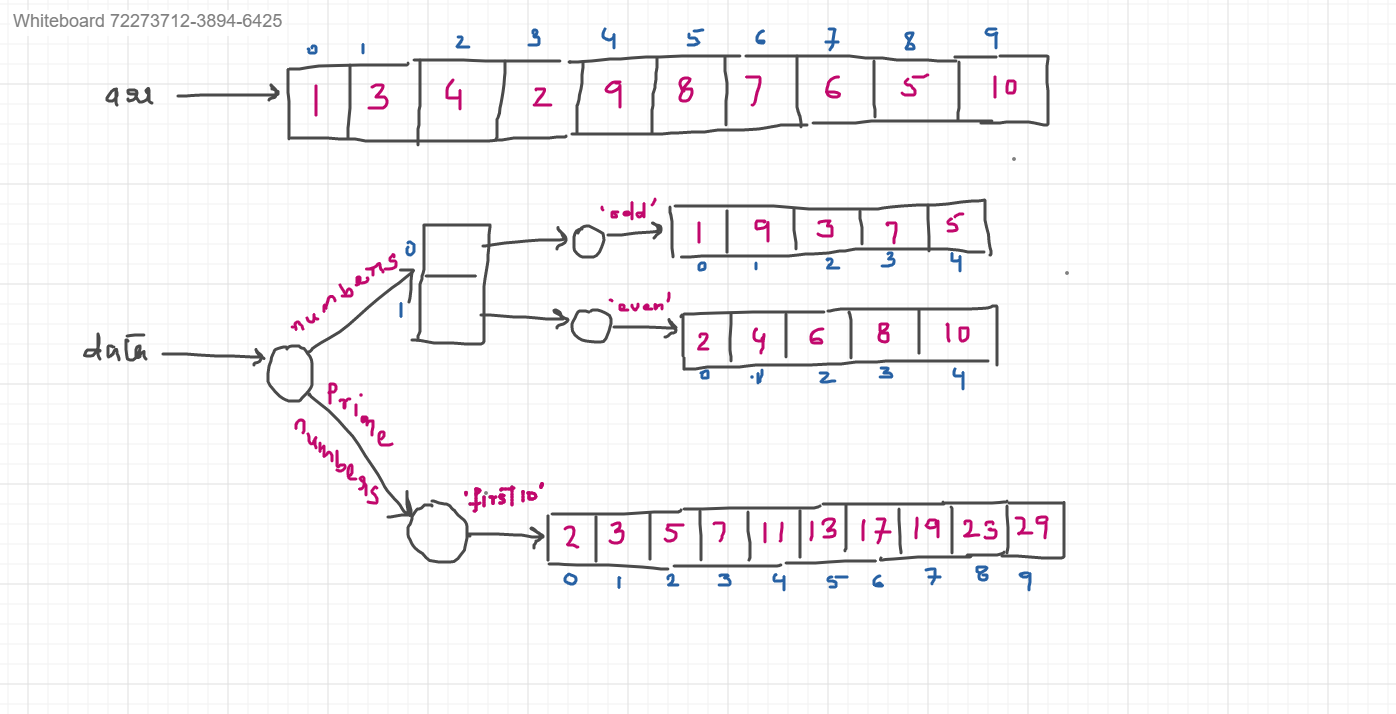 Whiteboard 72273712-3894-6425
0 1 2 3 4 5 6 7 8 9
arr 1 3 4 2 9 8 7 6 5 10
'odd' 1 9 3 7 5
0 1 2 3 4
numbers 0
1
'even' 2 4 6 8 10
0 1 2 3 4
data
Prime
numbers
'first10' 2 3 5 7 11 13 17 19 23 29
0 1 2 3 4 5 6 7 8 9